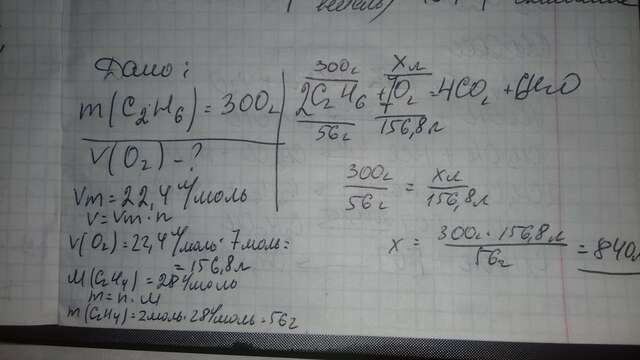 Дано:
m(C₂H₆) = 300г
V(O₂) - ?
Vm = 22,4 л/моль
V = Vm · n
V(O₂) = 22,4 л/моль · 7моль =
= 156,8л
M(C₂H₄) = 28г/моль
m = n · M
m(C₂H₄) = 2моль · 28г/моль = 56г
300г xл
2C₂H₆ + 7O₂ = 4CO₂ + 6H₂O
56г 156,8л
300г/56г = xл/156,8л
x = 300г · 156,8л/56г = 840л